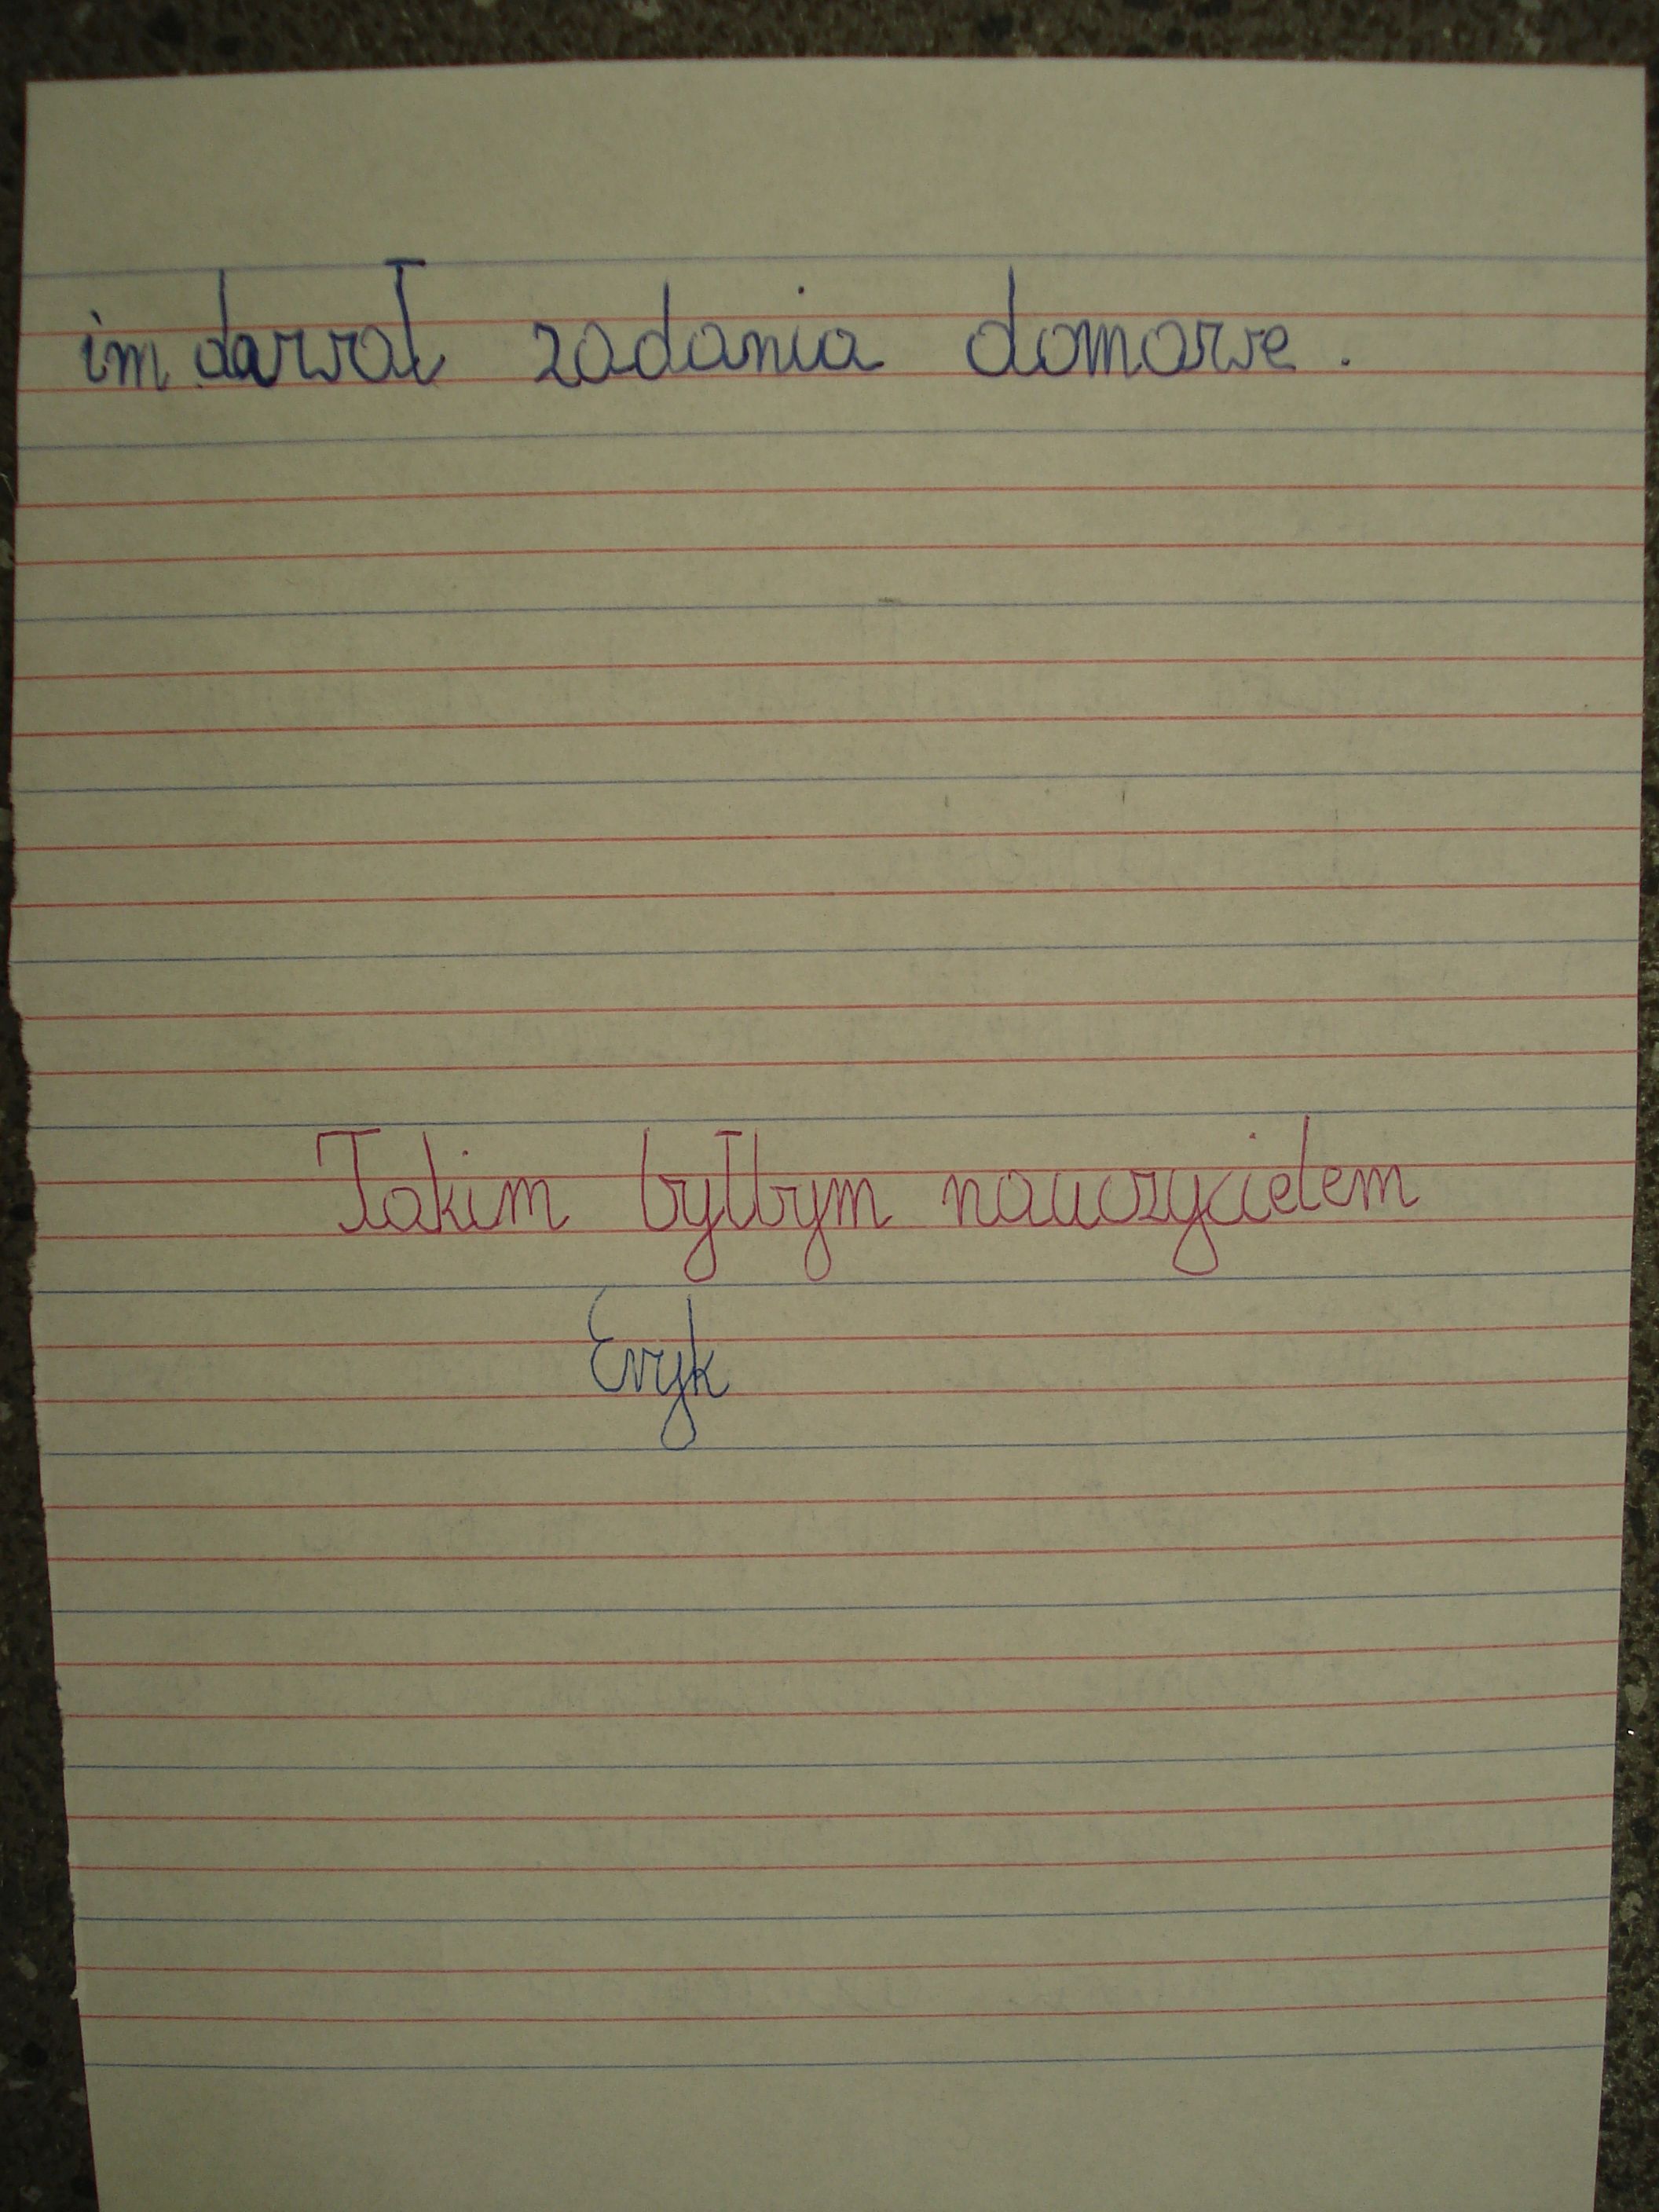 im dawał zadania domowe.
Takim byłbym nauczycielem
Eryk